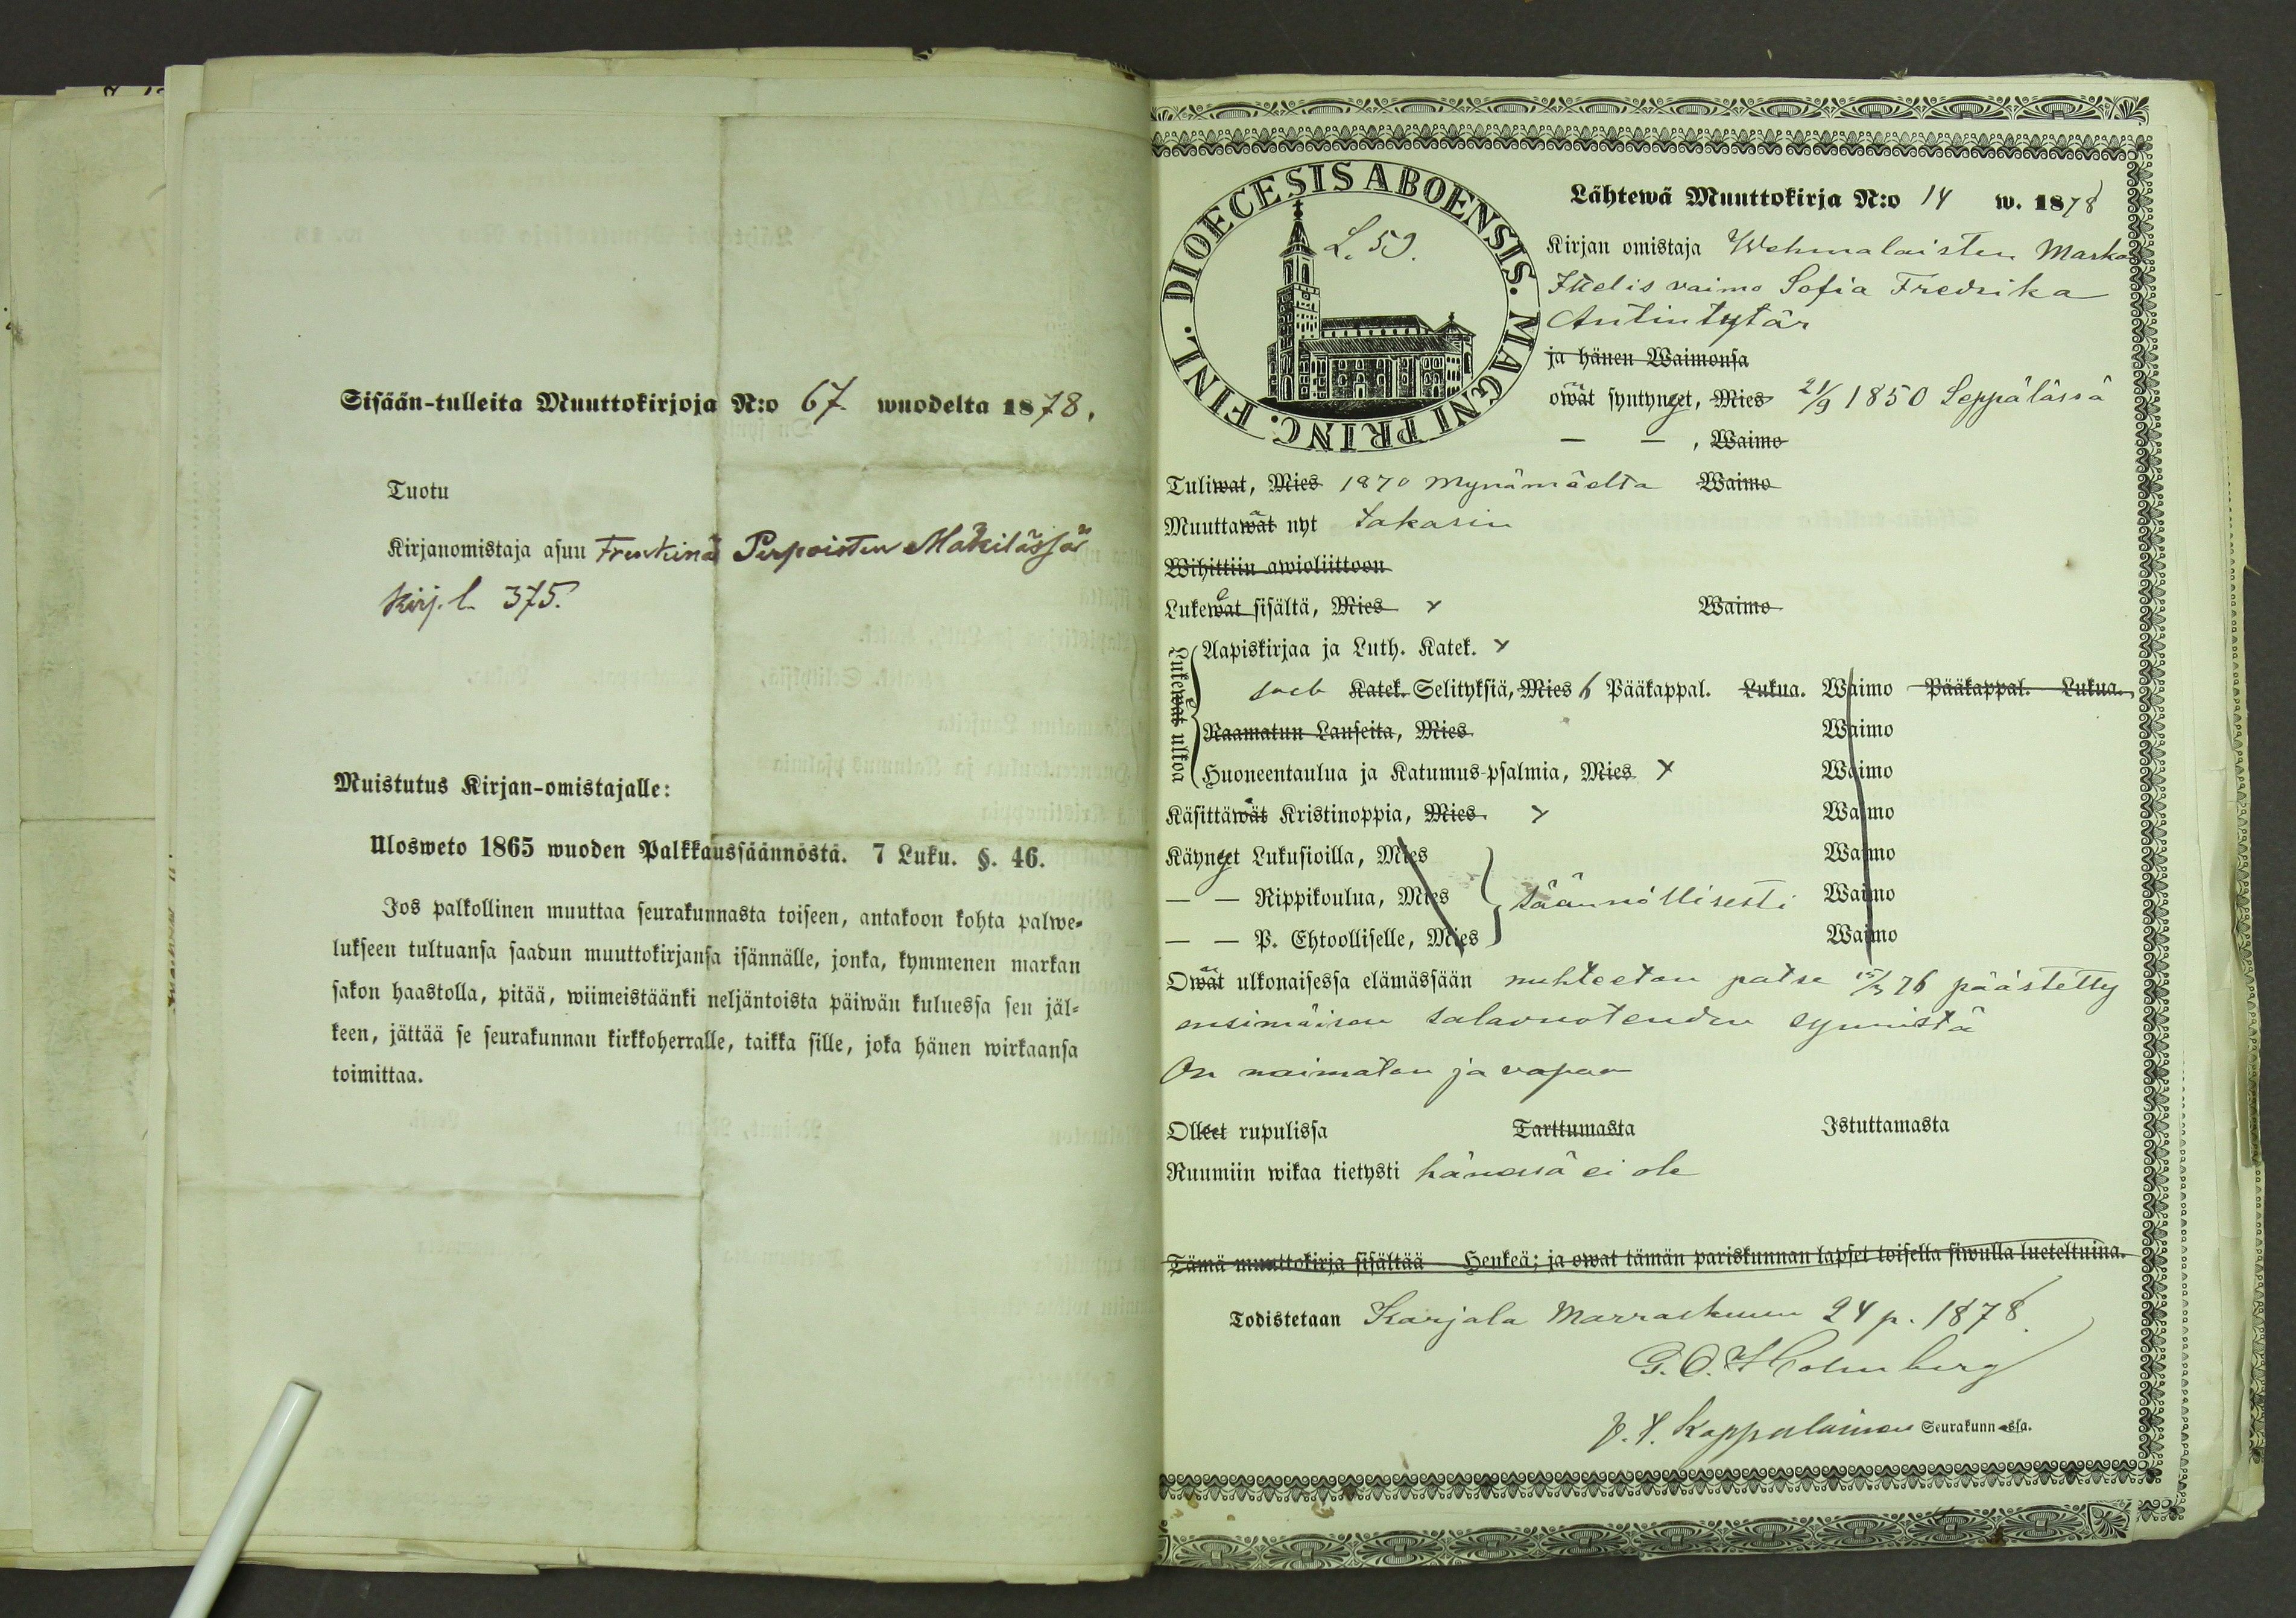 Sisään-tulleita Muuttokirjoja N:o 67. wuodelta 1878.
Tuotu
Kirjanomistaja asuu Frenkinä Perpoisten Mäkilässä
Kirj. l. 375.
Muistutus Kirjan-omistajalle:
Ulosweto 1865 wuoden Palkkaussäännöstä. 7 Luku. §. 46.
Jos palkollinen muuttaa seurakunnasta toiseen, antakoon kohta palwe-
lukseen tultuansa saadun muuttokirjansa isännälle, jonka, kymmenen markan
sakon haastolla, pitää, wiimeistäänki neljäntoista päiwän kuluessa sen jäl-
keen, jättää se seurakunnan kirkkoherralle, taikka sille, joka hänen wirkaansa
toimittaa.
DIOECESIS ABOENSIS. MAGNI PRINC. FINL.
L. 59.
Lähtewä Muuttokirja N:o 14 w. 1878
Kirjan omistaja Wehmalaisten Marka
vaimo Sofia Fredrika
Antintytär
ja hänen Waimonsa
owat syntynyet, Mies 21/9 1850 Seppälässä
— — , Waimo
Tuliwat, Mies 1870 Mynämäelta Waimo
Muuttawat nyt takasin
Wihittiin awioliittoon
Lukewat sisältä, Mies x Waimo
Lukewat ulkoa
Aapiskirjaa ja Luth. Katek. x
Sveb Katek. Selityksiä, Mies 6 Pääkappal. Lukua. Waimo Pääkappal. Lukua.
Raamatun Lauseita, Mies Waimo
Huoneentaulua ja Katumus-psalmia, Mies x Waimo
Käsittäwät Kristinoppia, Mies x Waimo
Käynyet Lukusioilla, Mies Waimo
— — Rippikoulua, Mies säännöllisesti Waimo
— — P. Ehtoolliselle, Mies Waimo
Owat ulkonaisessa elämässään nuhteetan patse 15/3 76 päästetty
ensimäisen salavuoteuden synnistä
On naimatan ja vapaa
Olleet rupulissa Tarttumasta Istuttamasta
Ruumiin wikaa tietysti hänessä ei ole
Tämä muuttokirja sisältää Henkeä; ja owat tämän pariskunnan lapset toisella siwulla lueteltuina.
Todistetaan Karjala Marraskuun 24 p. 1878.
G. O. Holmberg
Kappalainen Seurakunnassa.